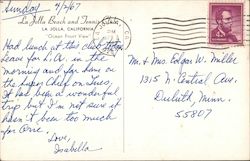 Sunday 4/2/67
La Jolla Beach and Tennis Club
LA JOLLA, CALIFORNIA
"Ocean Front View"
Had lunch at this club today.
Leave for L.A. in the
morning and for home on
the Super Chief on Tues.
It has been a wonderful
trip but I'm not sure it
hasn't been too much
for Orre.
Love,
Isabella
Mr. & Mrs. Edgar W. Miller
1315 N. Central Ave.
Duluth, Minn.
55807
4¢